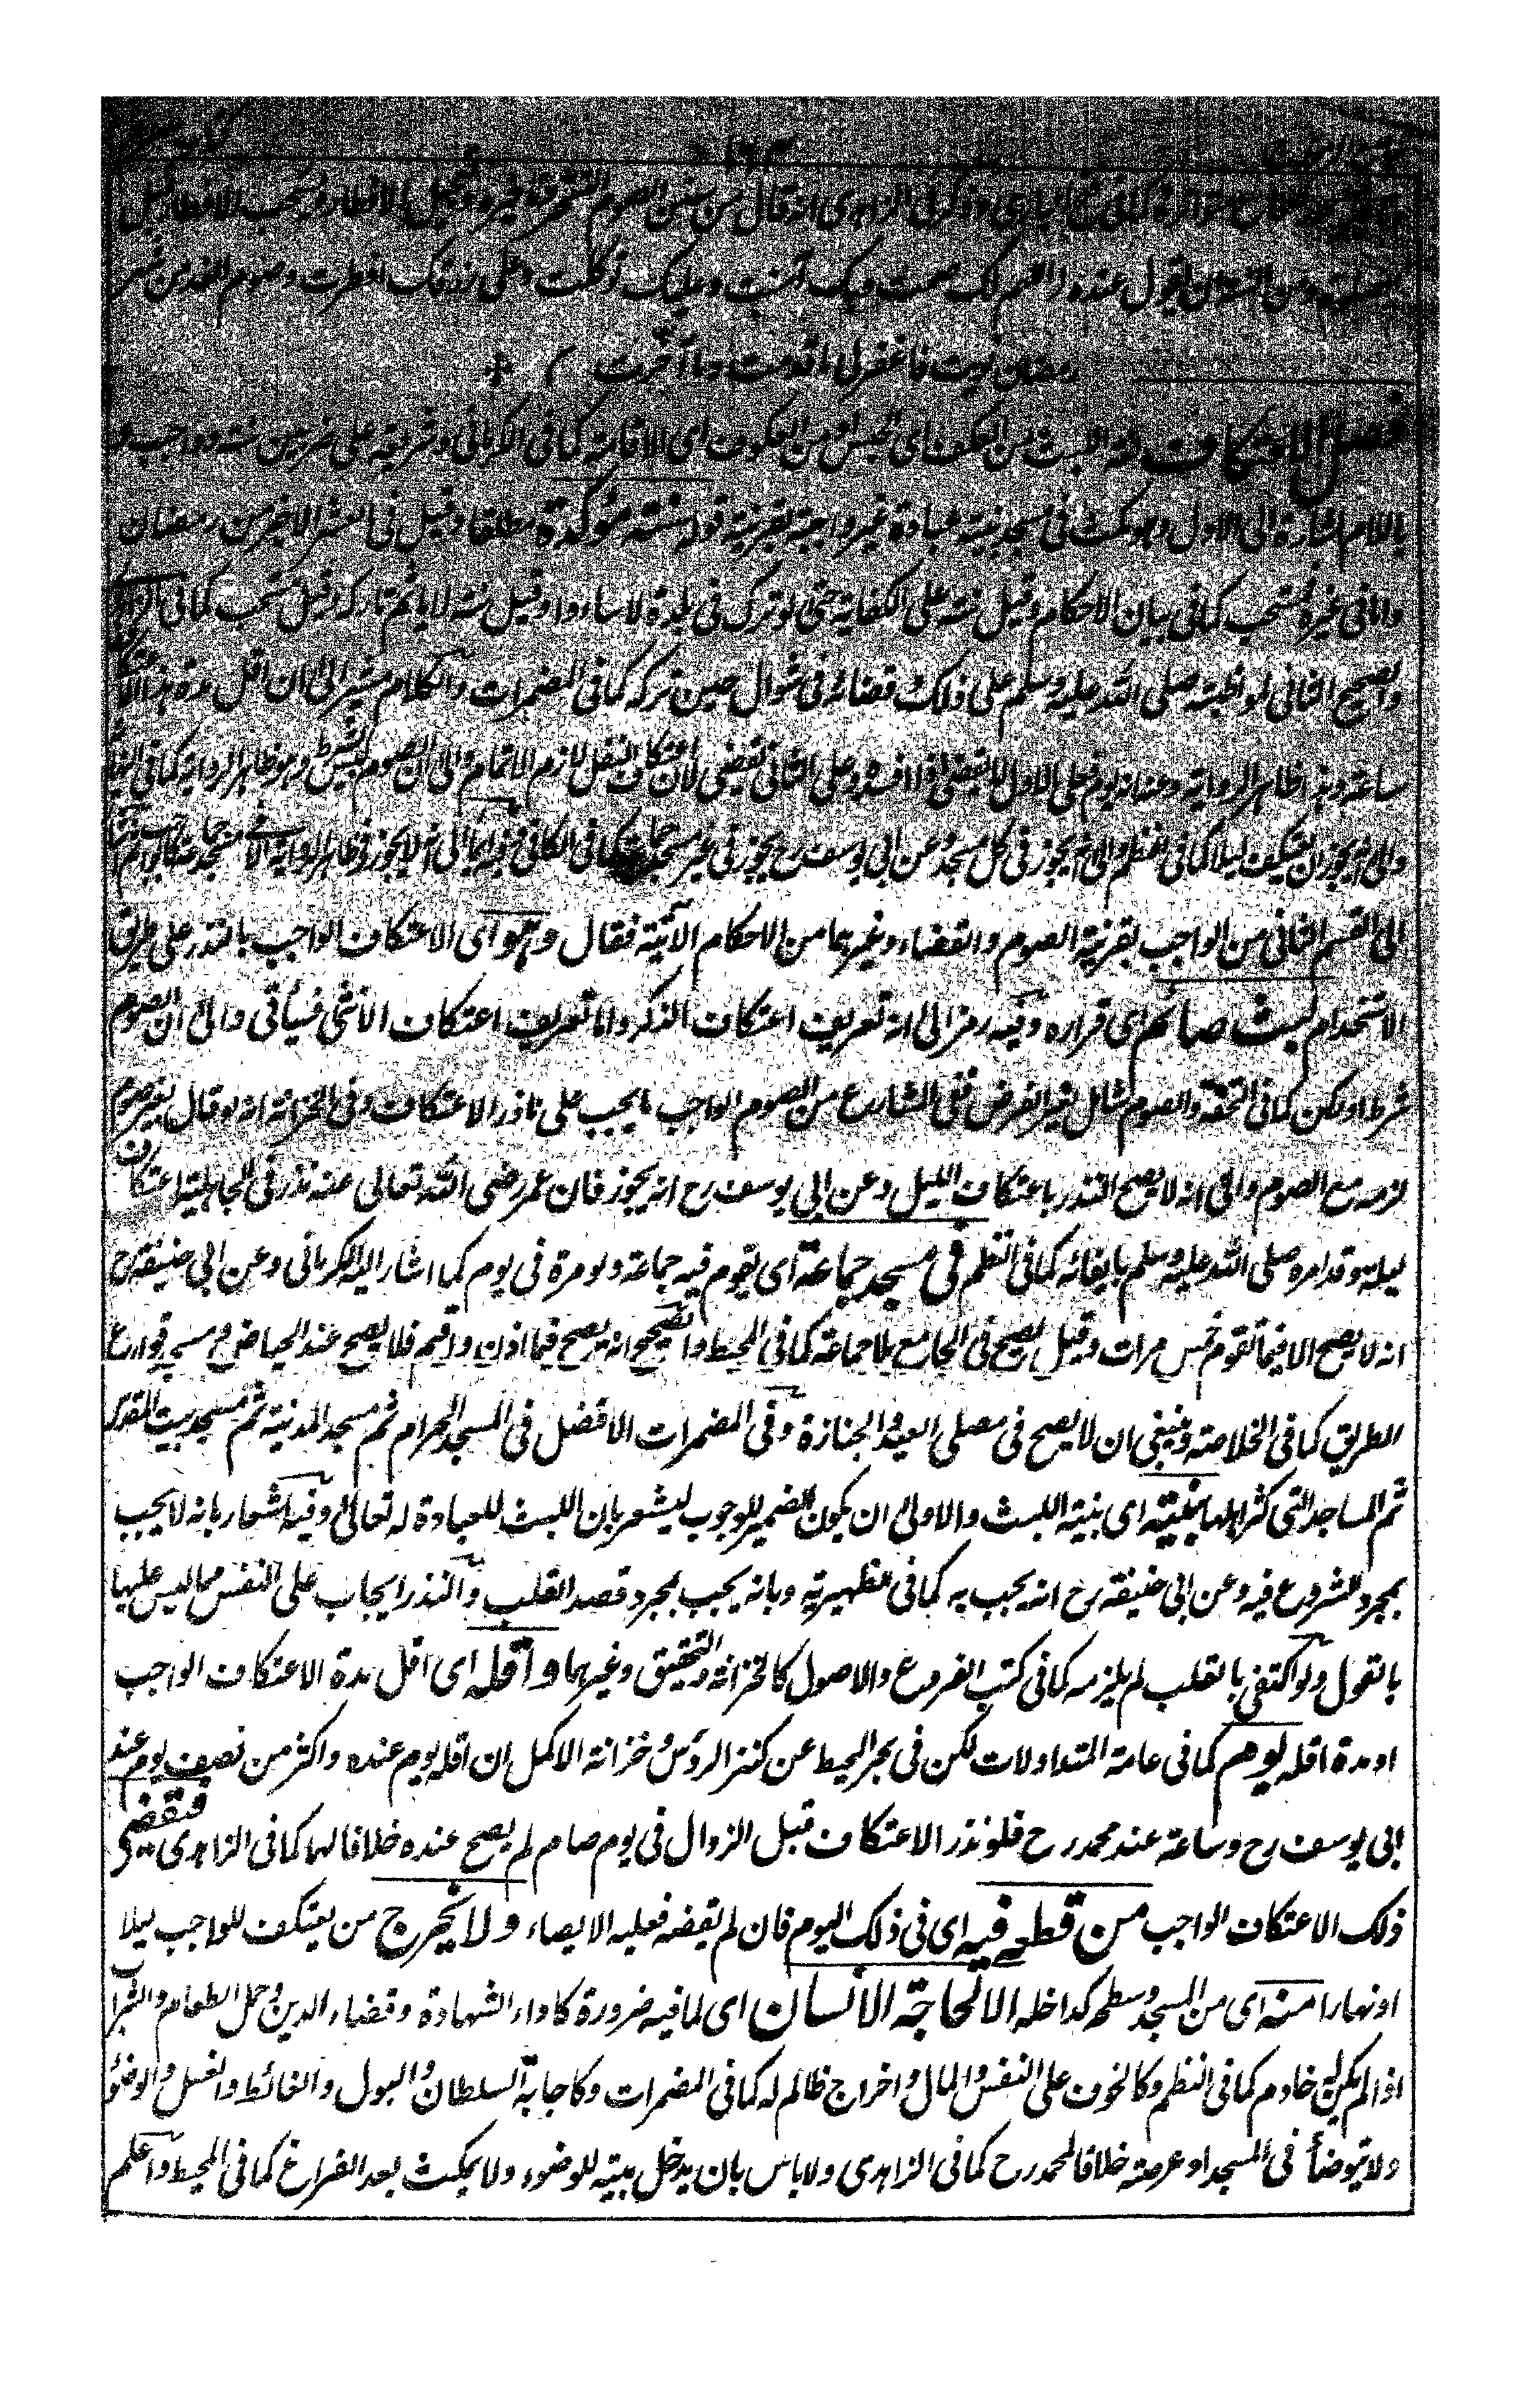 كما فى الزاهدى انه قال من سنن الصوم السحور وتاخيره وتعجيل الافطار ويستحب الافطار قبل
ومن السنة ان يقول عنده اللهم لك صمت وبك آمنت وعليك توكلت وعلى رزقك افطرت وصوم الغد من شهر
رمضان نويت فاغفرلى ما قدمت وما اخرت
فصل الاعتكاف لغة اللبث من العكف اى الحبس او من العكوف اى الاقامة كما فى الكرمانى وشريعة على ضربين سنة وواجب و
باللام اشارة الى الاول وهو مكث فى مسجد بنية عبادة غير واجبة بقرينة قوله سنة مؤكدة مطلقا وقيل فى العشر الاخير من رمضان
واما فى غيره فمستحب كما فى بيان الاحكام وقيل سنة على الكفاية حتى لو ترك فى بلدة لاساءوا وقيل سنة لا ياثم تاركه وقيل مستحب كما فى
والصحيح الثانى لمواظبته صلى الله عليه وسلم على ذلك وقضائه فى شوال حين تركه كما فى المضمرات والكلام مشير الى ان اقل مدة هذا الاعتكاف
ساعة وهذا ظاهر الرواية وعنه انه يوم فعلى الاول لا يقضى اذا افسده وعلى الثانى يقضى لان اعتكاف النفل لازم الاتمام والى ان الصوم ليس بشرط وهو ظاهر الرواية كما فى
والى انه يجوز ان يعتكف ليلا كما فى النظم والى انه يجوز فى كل مسجد وعن ابى يوسف رح يجوز فى غير مسجد جماعة كما فى الكافى
الى القسم الثانى من الواجب بقرينة الصوم والقضاء وغيرهما من الاحكام الآتية فقال وهو اى الاعتكاف الواجب بالنذر على طريق
الاستخدام لبث صائم اى قراره وفيه رمز الى انه تعريف اعتكاف الذكر واما تعريف اعتكاف الانثى فسيأتى والى ان الصوم
شرط او ركن كما فى التحفة والصوم شامل لغير الفرض ففى المشارع من الصوم الواجب ما يجب على ناذر الاعتكاف وفى الخزانة انه لو قال بغير صوم
لزمه مع الصوم والى انه لا يصح النذر باعتكاف الليل وعن ابى يوسف رح انه يجوز فان عمر رضى الله تعالى عنه نذر فى الجاهلية اعتكاف
ليلة وقد امره صلى الله عليه وسلم بايفائه كما فى النظم فى مسجد جماعة اى يقوم فيه جماعة ولو مرة فى يوم كما اشار اليه الكرمانى وعن ابى حنيفة رح
انه لا يصح الا فيما تقوم خمس مرات وقيل يصح فى الجامع بلا جماعة كما فى المحيط والصحيح انه يصح فيما اذن واقيم فلا يصح عند الحياض ومسجد قوارع
الطريق كما فى الخلاصة وينبغى ان لا يصح فى مصلى العيد والجنازة وفى المضمرات الافضل فى المسجد الحرام ثم مسجد المدينة ثم مسجد بيت المقدس
ثم المساجد التى كثر اهلها بنيته اى بنية اللبث والاولى ان يكون الضمير للوجوب ليشعر بان اللبث للعبادة له تعالى وفيه اشعار بانه لا يجب
بمجرد الشروع فيه وعن ابى حنيفة رح انه يجب به كما فى الظهيرية وبانه يجب بمجرد قصد القلب والنذر ايجاب على النفس مما ليس عليها
بالقول ولو اكتفى بالقلب لم يلزمه كما فى كتب الفروع والاصول كالخزانة والتحقيق وغيرهما واقله اى اقل مدة الاعتكاف الواجب
او مدة اقله يوم كما فى عامة المتداولات لكن فى بحر المحيط عن كنز الرؤس وخزانة الاكمل ان اقله يوم عنده واكثر من نصف يوم عند
ابى يوسف رح وساعة عند محمد رح فلو نذر الاعتكاف قبل الزوال فى يوم صام لم يصح عنده خلافا لهما كما فى الزاهدى فيقضى
ذلك الاعتكاف الواجب من قطعه فيه اى فى ذلك اليوم فان لم يقضه فعليه الايصاء ولا يخرج من يعتكف للواجب ليلا
او نهارا منه اى من المسجد وسطحه كداخله الا لحاجة الانسان اى لما فيه ضرورة كاداء الشهادة وقضاء الدين وحمل الطعام والشراب
اذا لم يكن له خادم كما فى النظم وكالخوف على النفس والمال واخراج ظالم له كما فى المضمرات وكاجابة السلطان والبول والغائط والغسل والوضوء
ولا يتوضأ فى المسجد او عرصته خلافا لمحمد رح كما فى الزاهدى ولا باس بان يدخل بيته للوضوء ولا يمكث بعد الفراغ كما فى المحيط واعلم